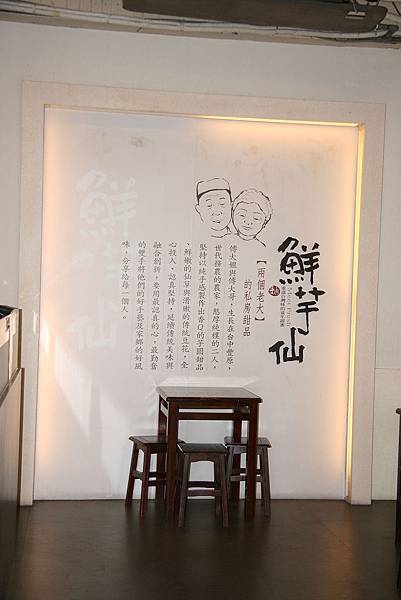 鮮芋仙
【兩個老大】
的私房甜品
傅大姐與傅大哥，生長在台中豐原，
世代務農的農家，憨厚純樸的二人，
堅持以純手感製作出香Q的芋圓甜品
、鮮嫩的仙草與滑嫩的傳統豆花，全
心投入、認真堅持，延續傳統美味與
融合創新，要用最認真的心，最勤奮
的雙手將他們的好手藝及家鄉的好風
味，分享給每一個人。
鮮芋仙